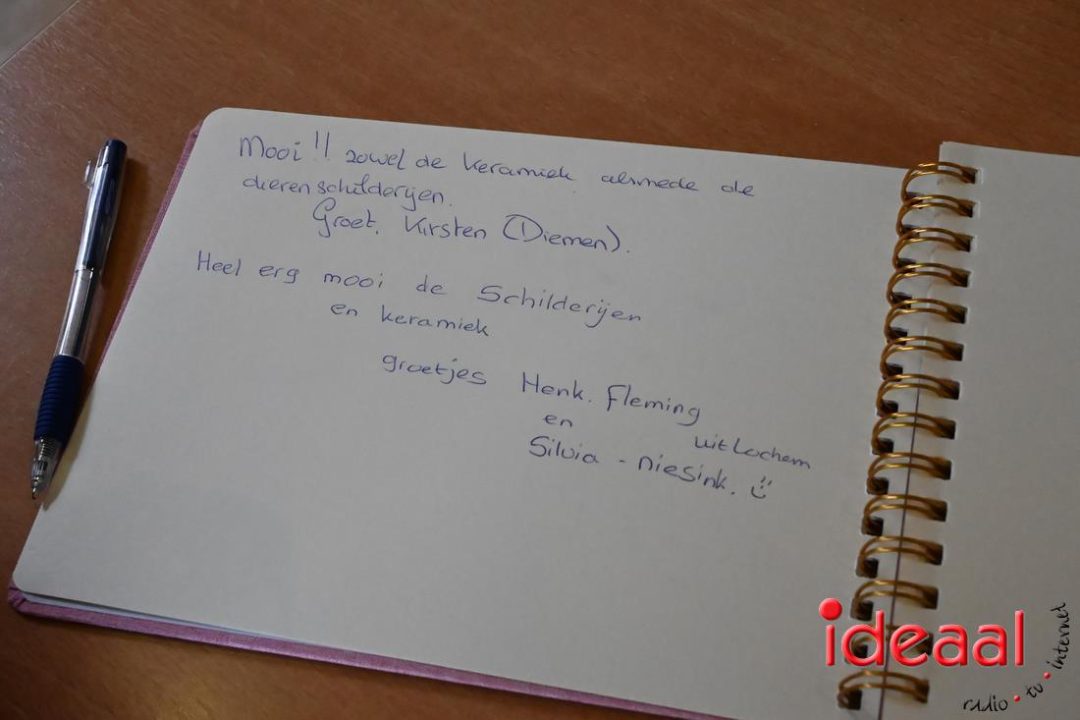 Mooi!! zowel de keramiek alsmede de
dierenschilderijen.
Groet, Kirsten (Diemen).
Heel erg mooi de Schilderijen
en keramiek
groetjes Henk. Fleming
en
uit Lochem
Silvia - niesink.
ideaal
radio • tv • internet